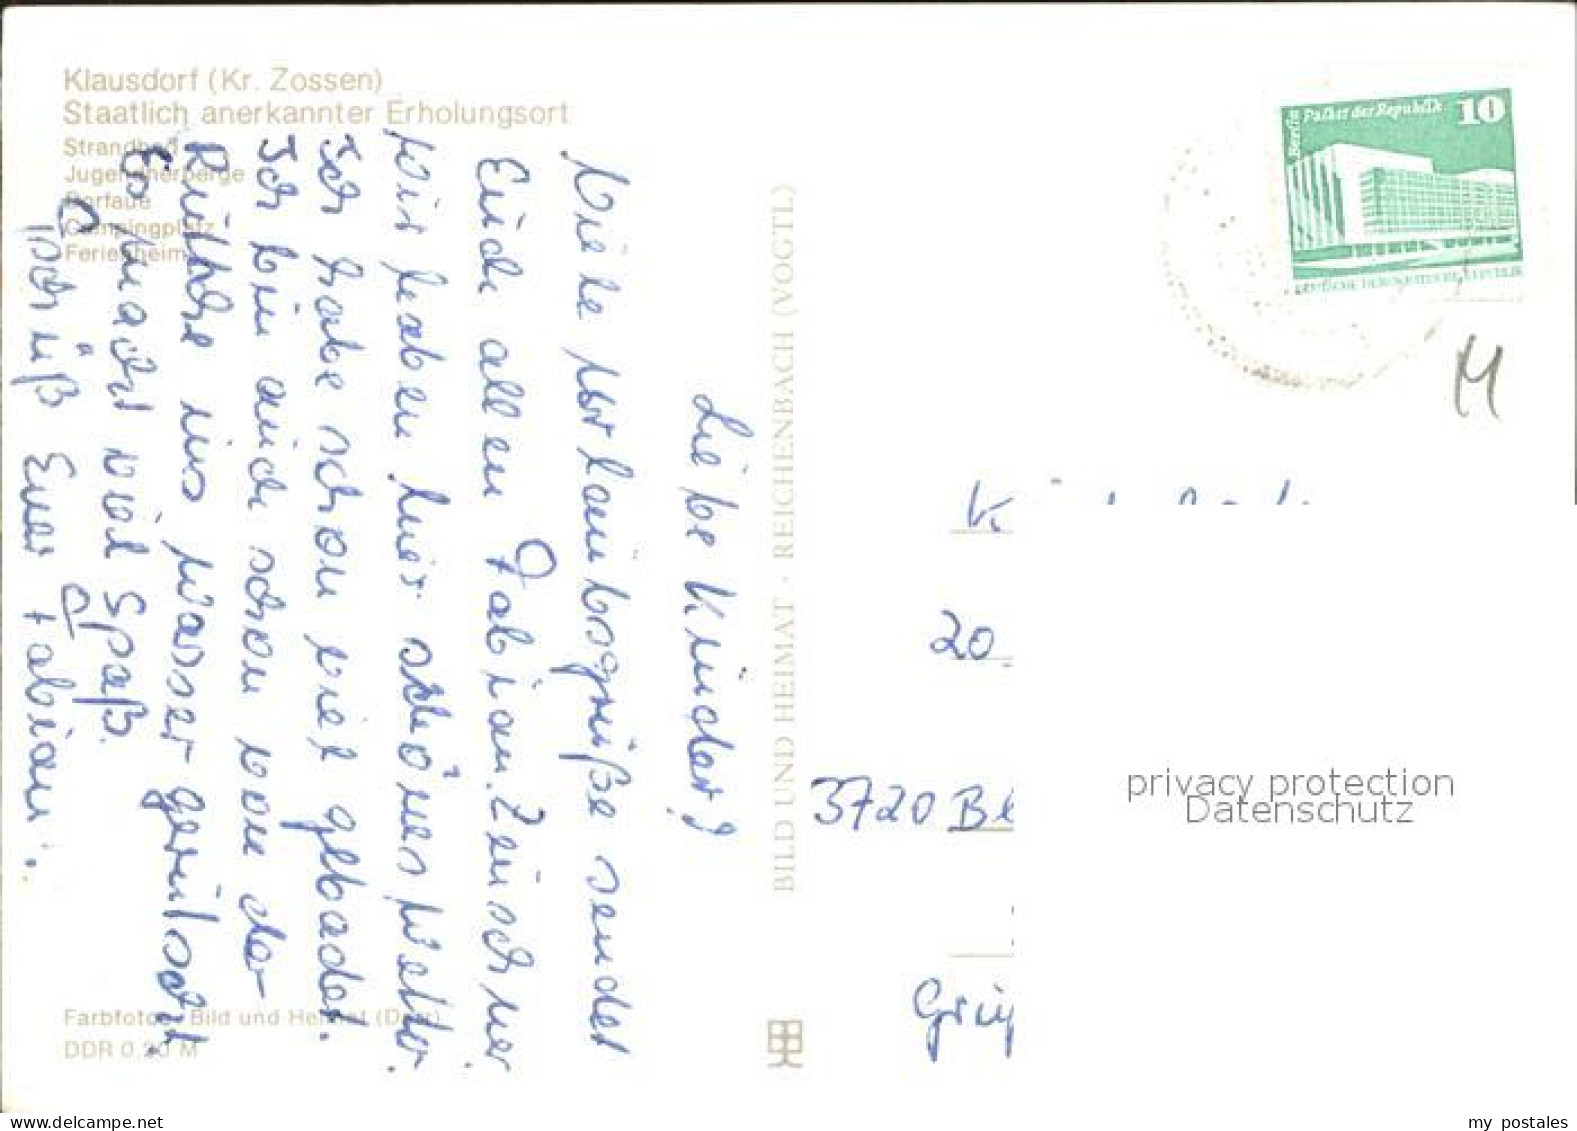 Klausdorf (Kr. Zossen)
Staatlich anerkannter Erholungsort
Strandbad
Jugendherberge
Dorfaue
Campingplatz
Ferienheim
Liebe Kinder!
Viele Urlaubsgrüße sendet
Euch allen Fabian.
Wir haben hier schönes Wetter.
Ich habe schon viel gebadet.
Ich bin auch schon von der
Rutsche ins Wasser gerutscht.
Es macht viel Spaß.
Tschüß Euer Fabian.
Farbfotos: Bild und Heimat (Darr)
DDR 0.20 M
BILD UND HEIMAT · REICHENBACH (VOGTL)
Berlin Palast der Republik 10
DEUTSCHE DEMOKRATISCHE REPUBLIK
M
20
3720 Bl
privacy protection
Datenschutz
www.delcampe.net
my_postales